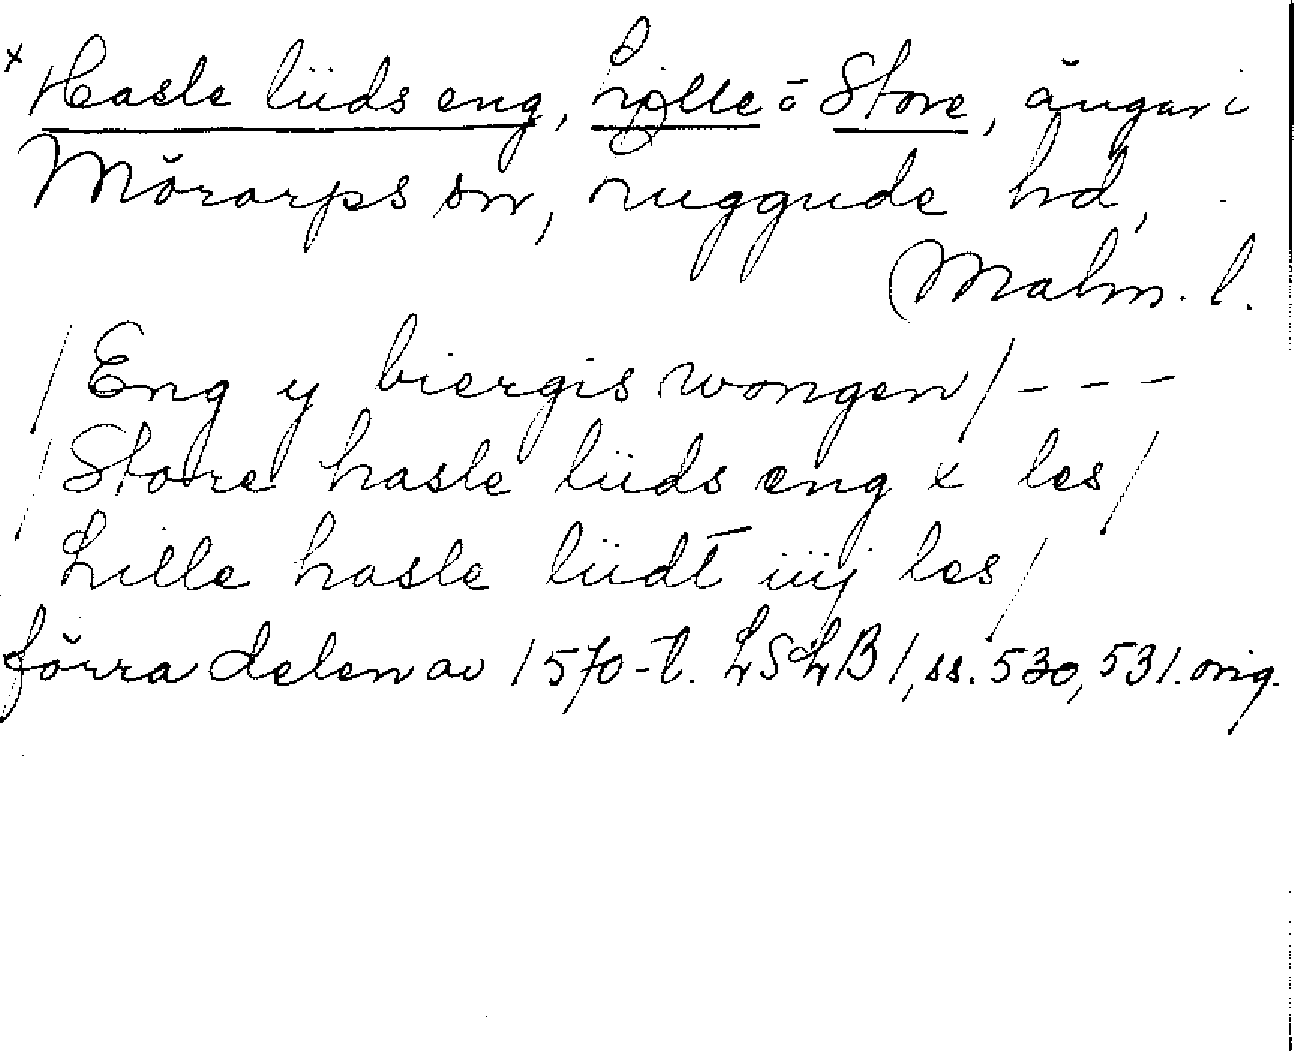 x Hasle lüds eng, Lille o Store, ängar i
Mörarps sn, ruggude hd,
Malm. l.
/ Eng y biergis wongen / - - -
/ Store hasle lüds eng x les /
Lille hasle lüdt iiij les /
förra delen av 1570-t. LSLB 1, ss. 530, 531. orig.